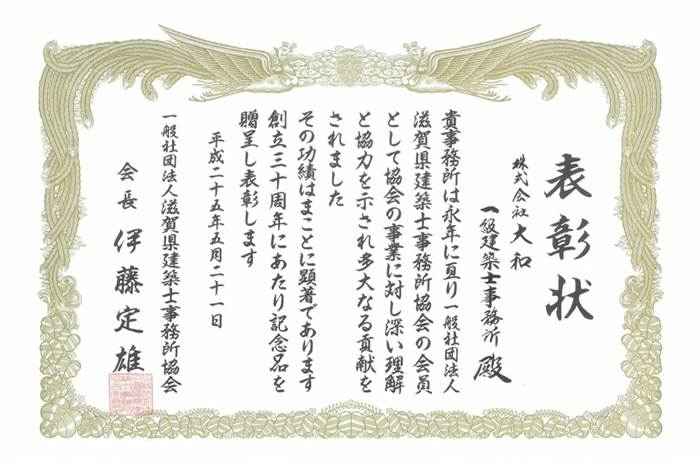 表彰状
株式会社 大和
一級建築士事務所 殿
貴事務所は永年に亘り一般社団法人
滋賀県建築士事務所協会の会員
として協会の事業に対し深い理解
と協力を示され多大なる貢献を
されました
その功績はまことに顕著であります
創立三十周年にあたり記念品を
贈呈し表彰します
平成二十五年五月二十一日
一般社団法人滋賀県建築士事務所協会
会長 伊藤定雄